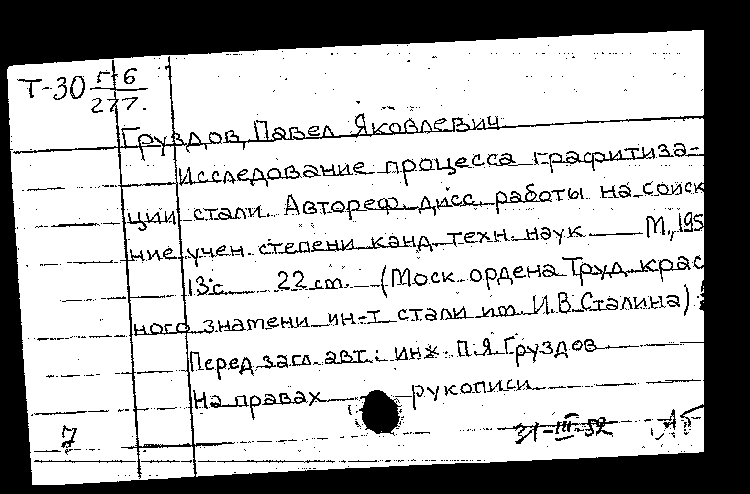 Т-30 Г-6
277.
Груздов, Павел Яковлевич
Исследование процесса графитиза-
ции стали. Автореф. дисс. работы на соиск
ние учен. степени канд. техн. наук М., 195
13 с. 22 см. (Моск. ордена Труд. крас
ного знамени ин-т стали им. И.В. Сталина)
Перед загл. авт.: инж. П.Я. Груздов
На правах рукописи
7 31-III-52 Аб